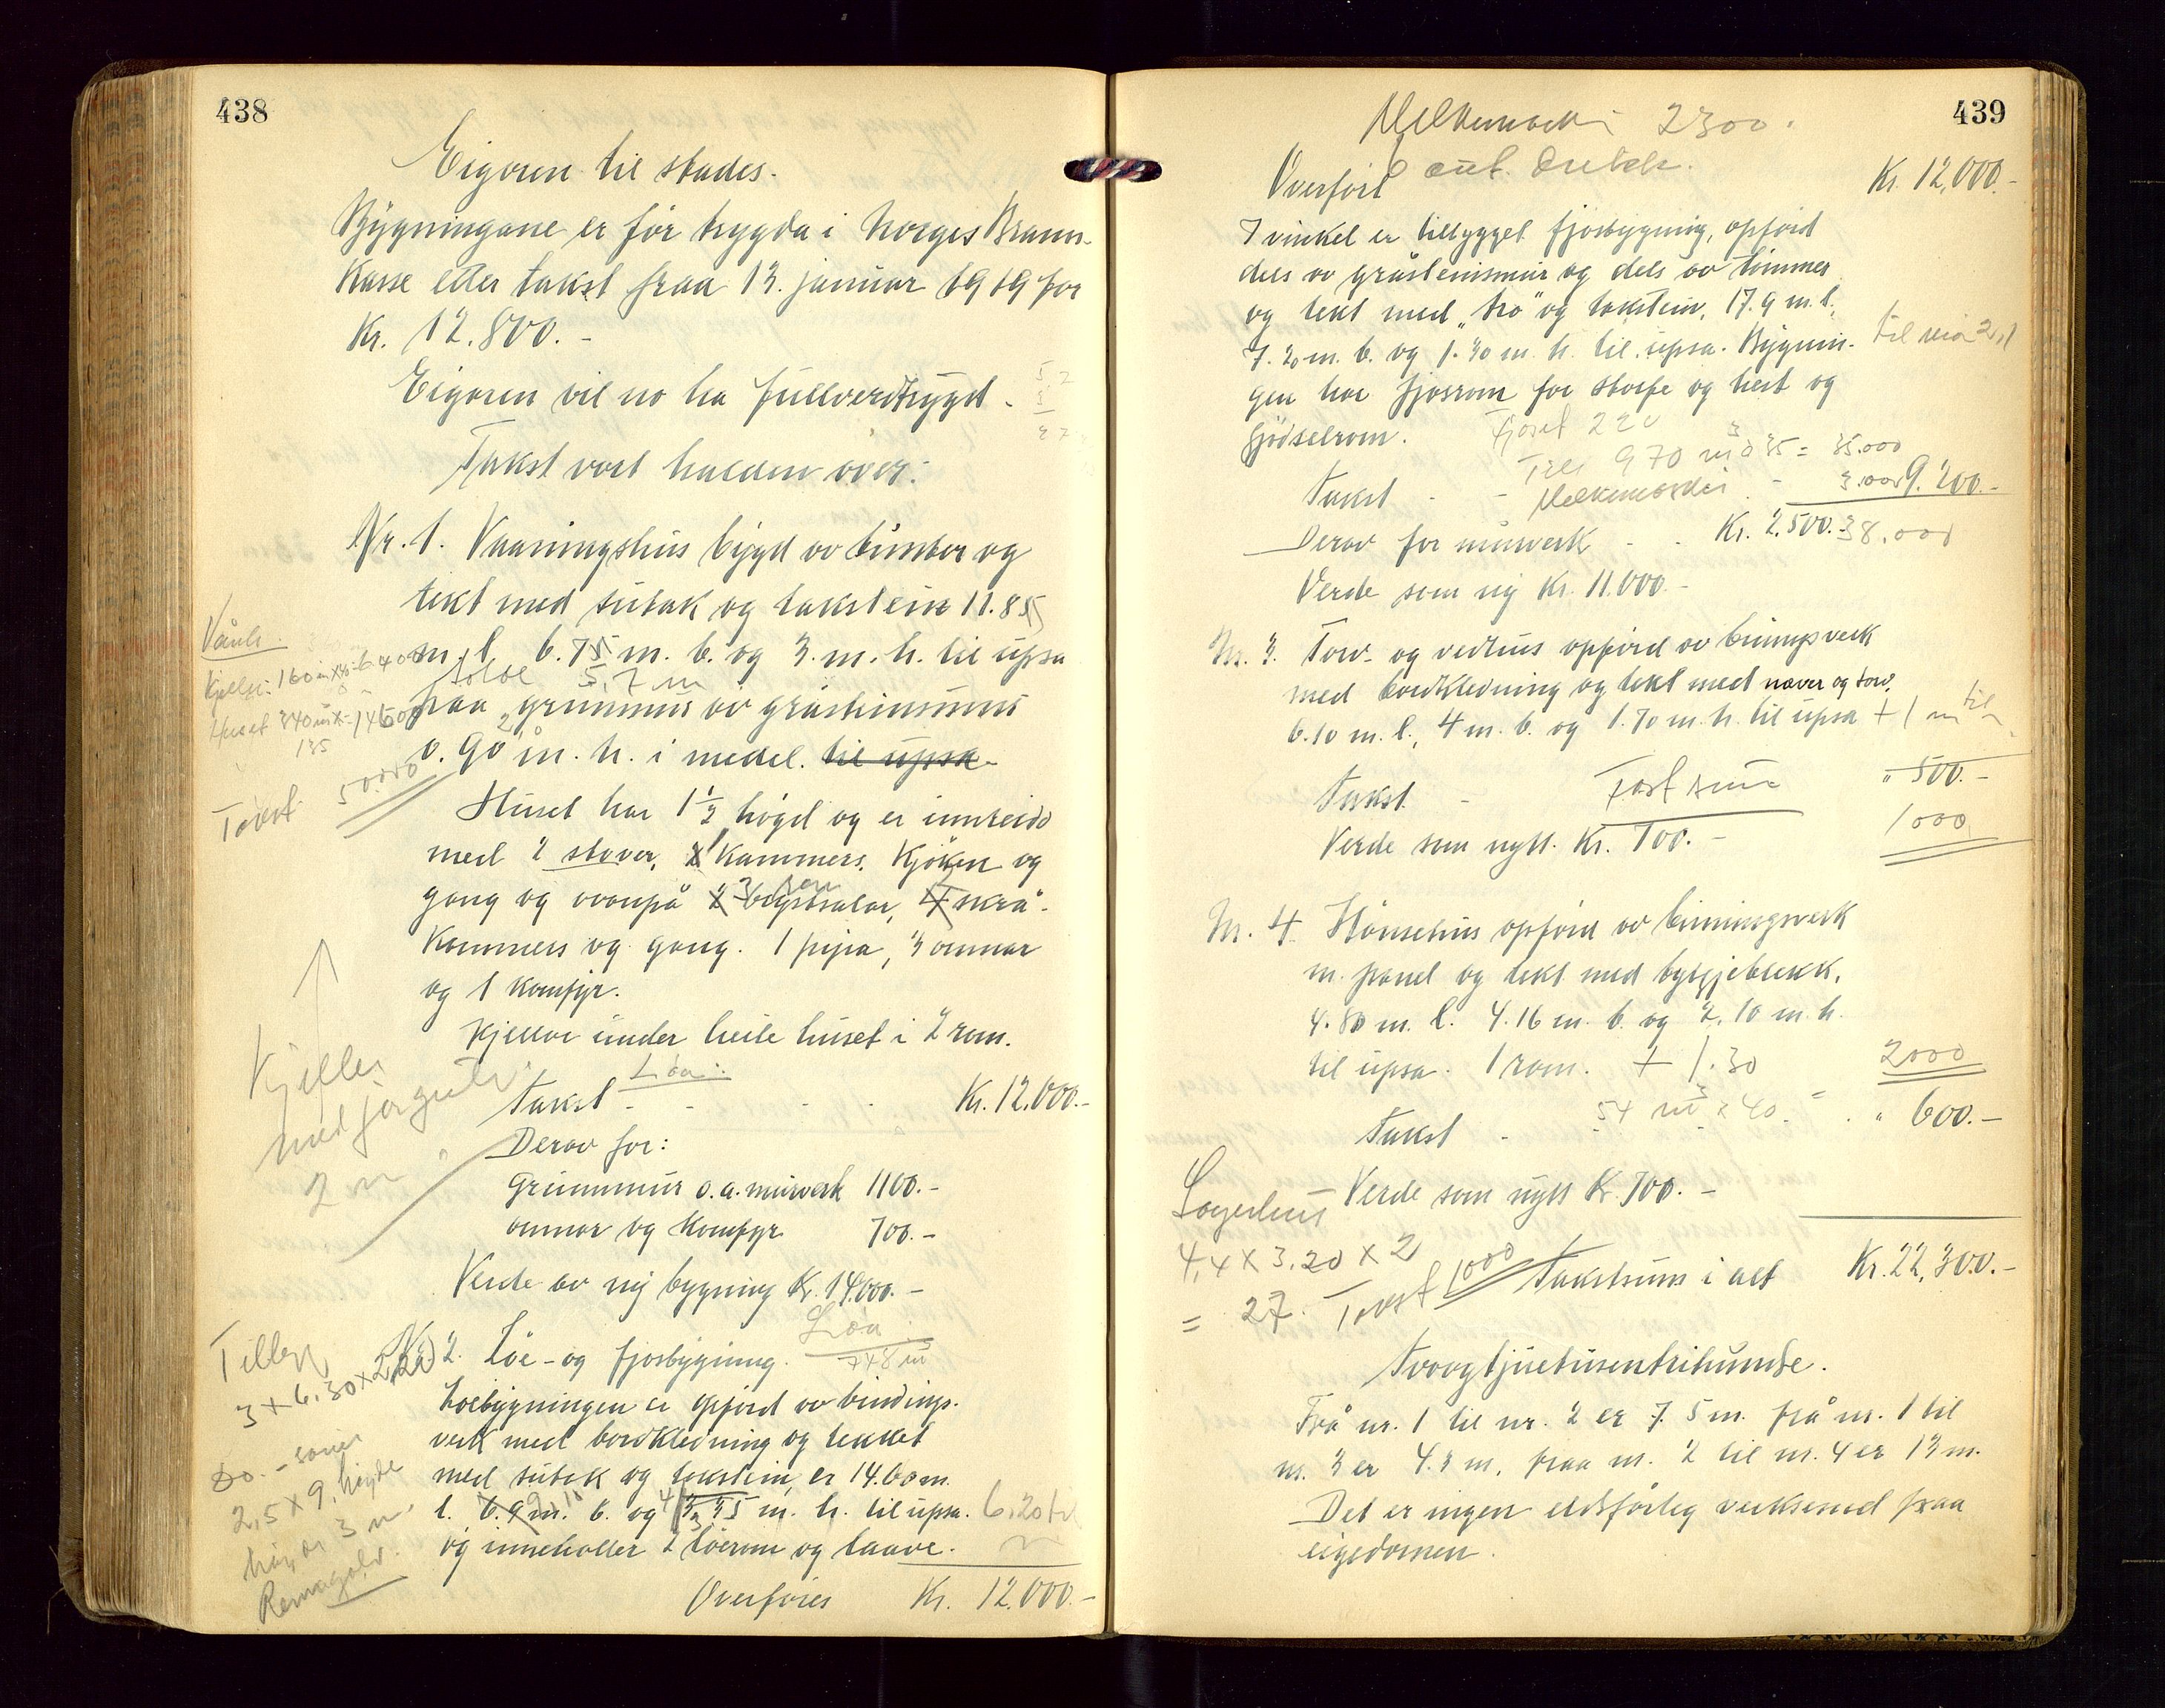 438
Eigaren til stades.
Bygningane er før trygda i Norges Brann-
kasse etter takst fraa 13. januar 1919 for
Kr. 12.800.-
Eigaren vil no ha fullverdtrygd.
Takst vart halden over:
Nr. 1. Vaaningshus bygd av timber og
tekt med sutak og takstein 11.85
m. l. 6.75 m. b. og 3. m. h. til upsa
5,7 m
paa grunnmur av gråsteinsmur
0.90 m. h. i medel. til upsa
Vånh.
Kjeller: 160 m
Huset 340 m
135
Takst 50.000
Huset har 1½ høgd og er innreidd
med 2 stover, 1 kammers, kjøken og
gang og ovanpå 2 3
kammers og gang. 1 pipa, 3 omnar
og 1 komfyr.
Kjellar under heile huset i 2 rom.
Kjeller
2 m
Takst - - - - Kr. 12.000.-
Derav for:
Grunnmur o.a. murverk 1100.-
omnar og komfyr 700.-
Verde av ny bygning Kr. 14000.-
Løa
748 m³
Nr. 2. Løe- og fjosbygning.
Løebygningen er opførd av bindings-
verk med bordkledning og tekket
med sutak og takstein, er 14.60 m.
l. 6.9 m. b. og 3.35 m. h. til upsa. 6,20 til
og inneholder 2 løerom og laave.
Tillegg
3 x 6,30 x 2,20
Do. -
2,5 x 9, høgde
3 m.
Overføres Kr. 12.000.-
439
Melkemask. 2300.
Overført Kr. 12,000.-
I vinkel er tilbygget fjosbygning, opførd
dels av gråsteinsmur og dels av tømmer
og tekt med "tro" og takstein, 17.9 m. l.
7.20 m. b. og 1.30 m. h. til upsa. Bygnin-
gen har fjosrom for storfe og hest og
gjødselrom.
Fjoset 220
970 m³ à 35 = 35.000
Melkemaskin - 3.000
Takst - - 9.200.-
Derav for murverk - - Kr. 2.500.- 38.000
Verde som ny Kr. 11.000.-
Nr. 3. Torv- og vedhus opførd av bindingsverk
med bordkledning og tekt med never og torv,
6.10 m. l., 4 m. b. og 1.70 m. h. til upsa + 1 m til
Takst - " 500.-
1000
Verde som nytt. Kr. 700.-
Nr. 4. Hønsehus opførd av bindingsverk
m. panel og tekt med bylgjeblekk,
4.80 m. l. 4.16 m. b. og 2.10 m. h.
til upsa. 1 rom. + 1.30
2000
54 m³ x 40. =
Takst - - - " 600.-
Verde som nytt Kr. 700.-
Lagerhus
4,4 x 3,20 x 2
= 27. Takst 1000
Takstsum i alt Kr. 22,300.-
Tvoogtjuetusentrihundre.
Frå nr. 1 til nr. 2 er 7.5 m. frå nr. 1 til
nr. 3 er 4.3 m. fraa nr. 2 til nr. 4 er 13 m.
Det er ingen eldsfårleg verksemd paa
eigedomen.